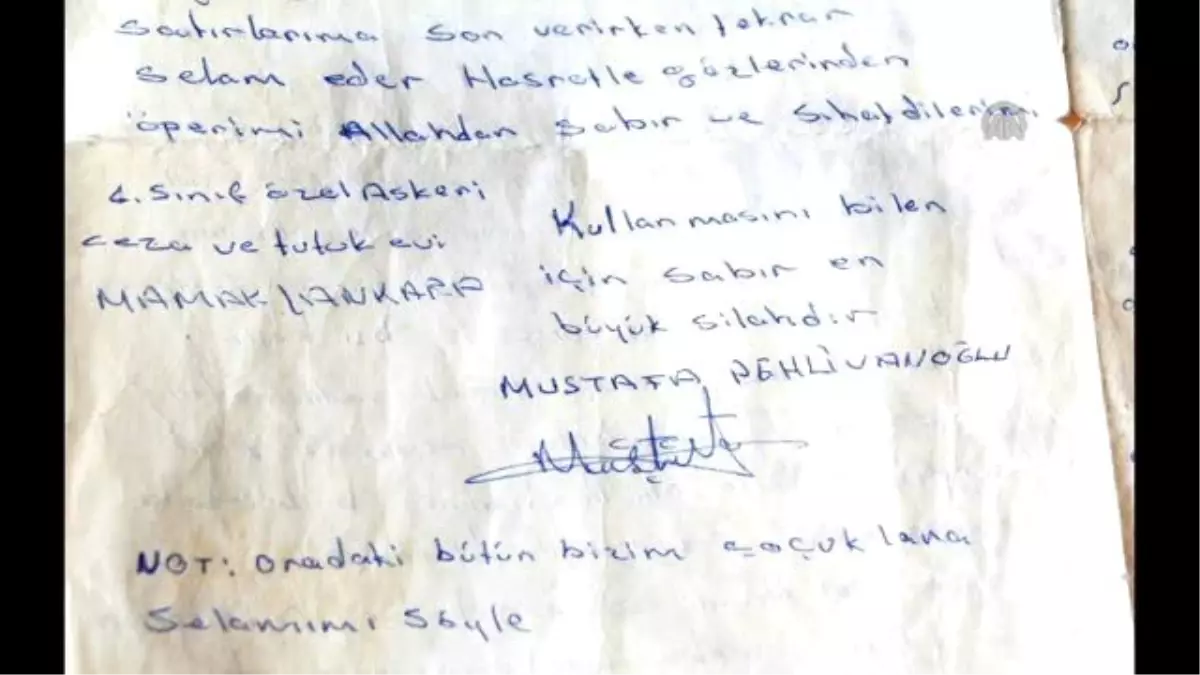 Satırlarıma son verirken tekrar
Selam eder Hasretle gözlerinden
öperimi Allahdan sabır ve sıhat dilerim.
4. Sınıf özel Askeri
ceza ve tutuk evi
MAMAK / ANKARA
Kullanmasını bilen
için sabır en
büyük silahdır
MUSTAFA PEHLİVANOĞLU
Mustafa
NOT: Oradaki bütün bizim çoçuklara
Selamımı Söyle